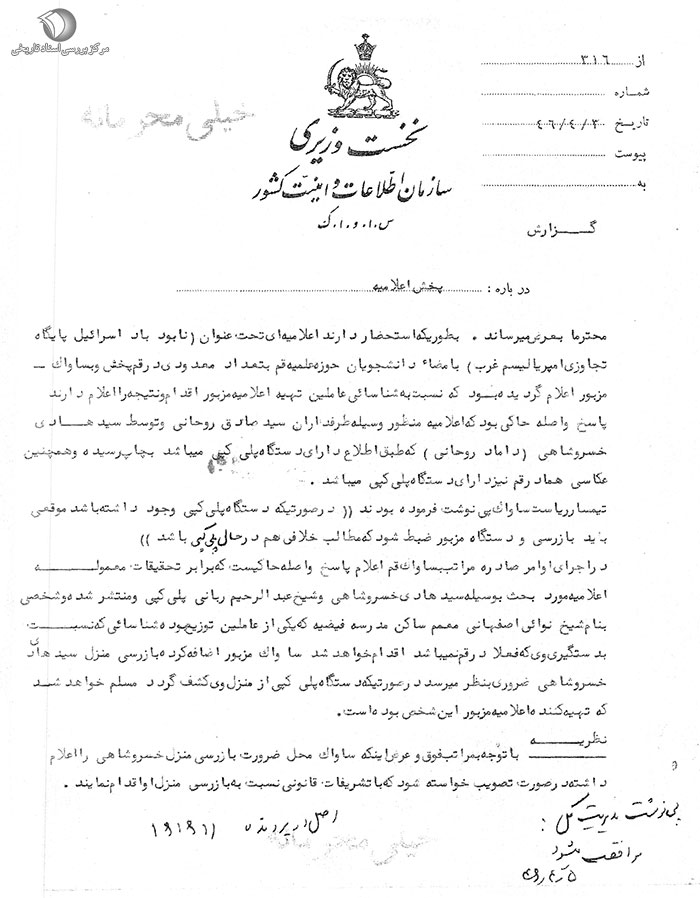 مرکز بررسی اسناد تاریخی
خیلی محرمانه
از ۳۱۶
شماره
تاریخ ۴۶/۴/۳
پیوست
به
نخست وزیری
سازمان اطلاعات و امنیت کشور
س.ا.و.ا.ک
گزارش
درباره : پخش اعلامیه
محترما بعرض میرساند . بطوریکه استحضار دارند اعلامیه‌ای تحت عنوان (نابود باد اسرائیل پایگاه
تجاوزی امپریالیسم غرب) بامضاء دانشجویان حوزه علمیه قم بتعداد معدودی در قم پخش و بساواک
مزبور اعلام گردیده بود که نسبت به شناسائی عاملین تهیه اعلامیه مزبور اقدام و نتیجه را اعلام دارند
پاسخ واصله حاکی بود که اعلامیه منظور وسیله طرفداران سید صادق روحانی و توسط سید هادی
خسروشاهی (داماد روحانی) که طبق اطلاع دارای دستگاه پلی کپی میباشد بچاپ رسیده و همچنین
عکاسی هما در قم نیز دارای دستگاه پلی کپی میباشد .
تیمسار ریاست ساواک پی نوشت فرموده بودند ((در صورتیکه دستگاه پلی کپی وجود داشته باشد موقعی
باید بازرسی و دستگاه مزبور ضبط شود که مطالب خلافی هم در حال پلی کپی باشد))
در اجرای اوامر صادره مراتب بساواک قم اعلام پاسخ واصله حاکیست که برابر تحقیقات معموله
اعلامیه مورد بحث بوسیله سید هادی خسروشاهی و شیخ عبدالرحیم ربانی پلی کپی و منتشر شده و شخصی
بنام شیخ نوائی اصفهانی معمم ساکن مدرسه فیضیه که یکی از عاملین توزیع بوده شناسائی که نسبت
بدستگیری وی که فعلا در قم نمیباشد اقدام خواهد شد ساواک مزبور اضافه کرده بازرسی منزل سید هادی
خسروشاهی ضروری بنظر میرسد در صورتیکه دستگاه پلی کپی از منزل وی کشف گردد مسلم خواهد شد
که تهیه کننده اعلامیه مزبور این شخص بوده است .
نظریه
با توجه بمراتب فوق و عرض اینکه ساواک محل ضرورت بازرسی منزل خسروشاهی را اعلام
داشته در صورت تصویب خواسته شود که با تشریفات قانونی نسبت به بازرسی منزل او اقدام نمایند .
پی نوشت مدیریت کل :
موافقت میشود
اصل در پرونده
خیلی محرمانه